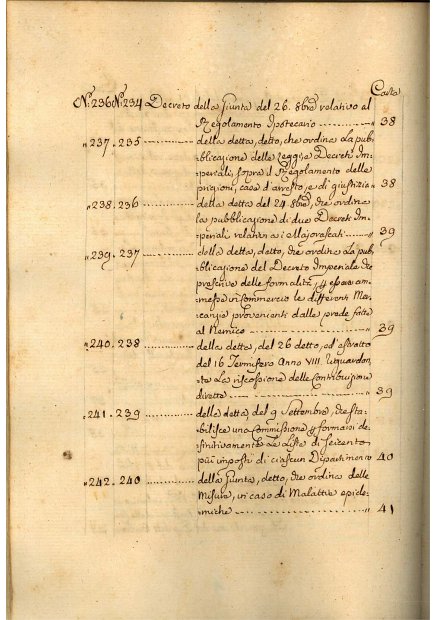 Carta
Nº 236 Nº 234 Decreto della Giunta del 26. 8bre relativo al
Regolamento Ipotecario ---------- " 38
" 237. 235 ---------- della detta, detto, che ordina la pub-
blicazione delle Leggi, e Decreti Im-
periali, sopra il Regolamento delle
prigioni, case d'arresto, e di giustizia " 38
" 238. 236 ---------- della detta del 24 8bre, che ordina
la pubblicazione di due Decreti Im-
periali relativi a i Majorascati ---- " 39
" 239. 237 ---------- della detta, detto, che ordina la pub-
blicazione del Decreto Imperiale che
prescrive delle formalità, p essere am-
messe in Commercio le differenti Mer-
canzie provenienti dalle prede fatte
al Nemico ---------- " 39
" 240. 238 ---------- della detta, del 26 detto, ed estratto
del 16 Termifero Anno VIII. riguardan-
te la riscossione delle Contribuzioni
dirette ---------- " 39
" 241. 239 ---------- della detta, del 9 Settembre, che sta-
bilisce una Commissione p formarsi de-
finitivamente le Liste di Seicento
più imposti di ciascun Dipartimento " 40
" 242. 240 ---------- della Giunta, detto, che ordina delle
Misure, in caso di Malattie epide-
miche ---------- " 41